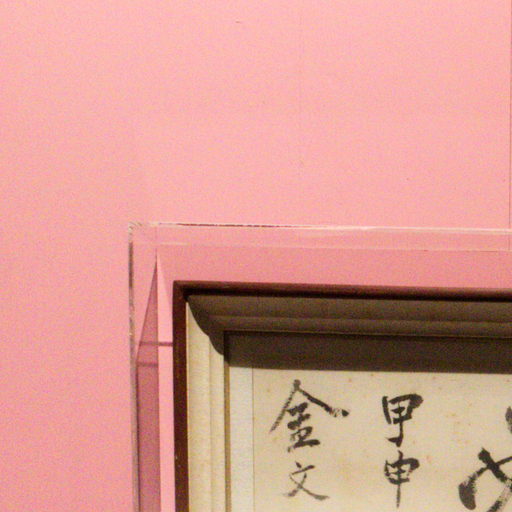 甲申
金文